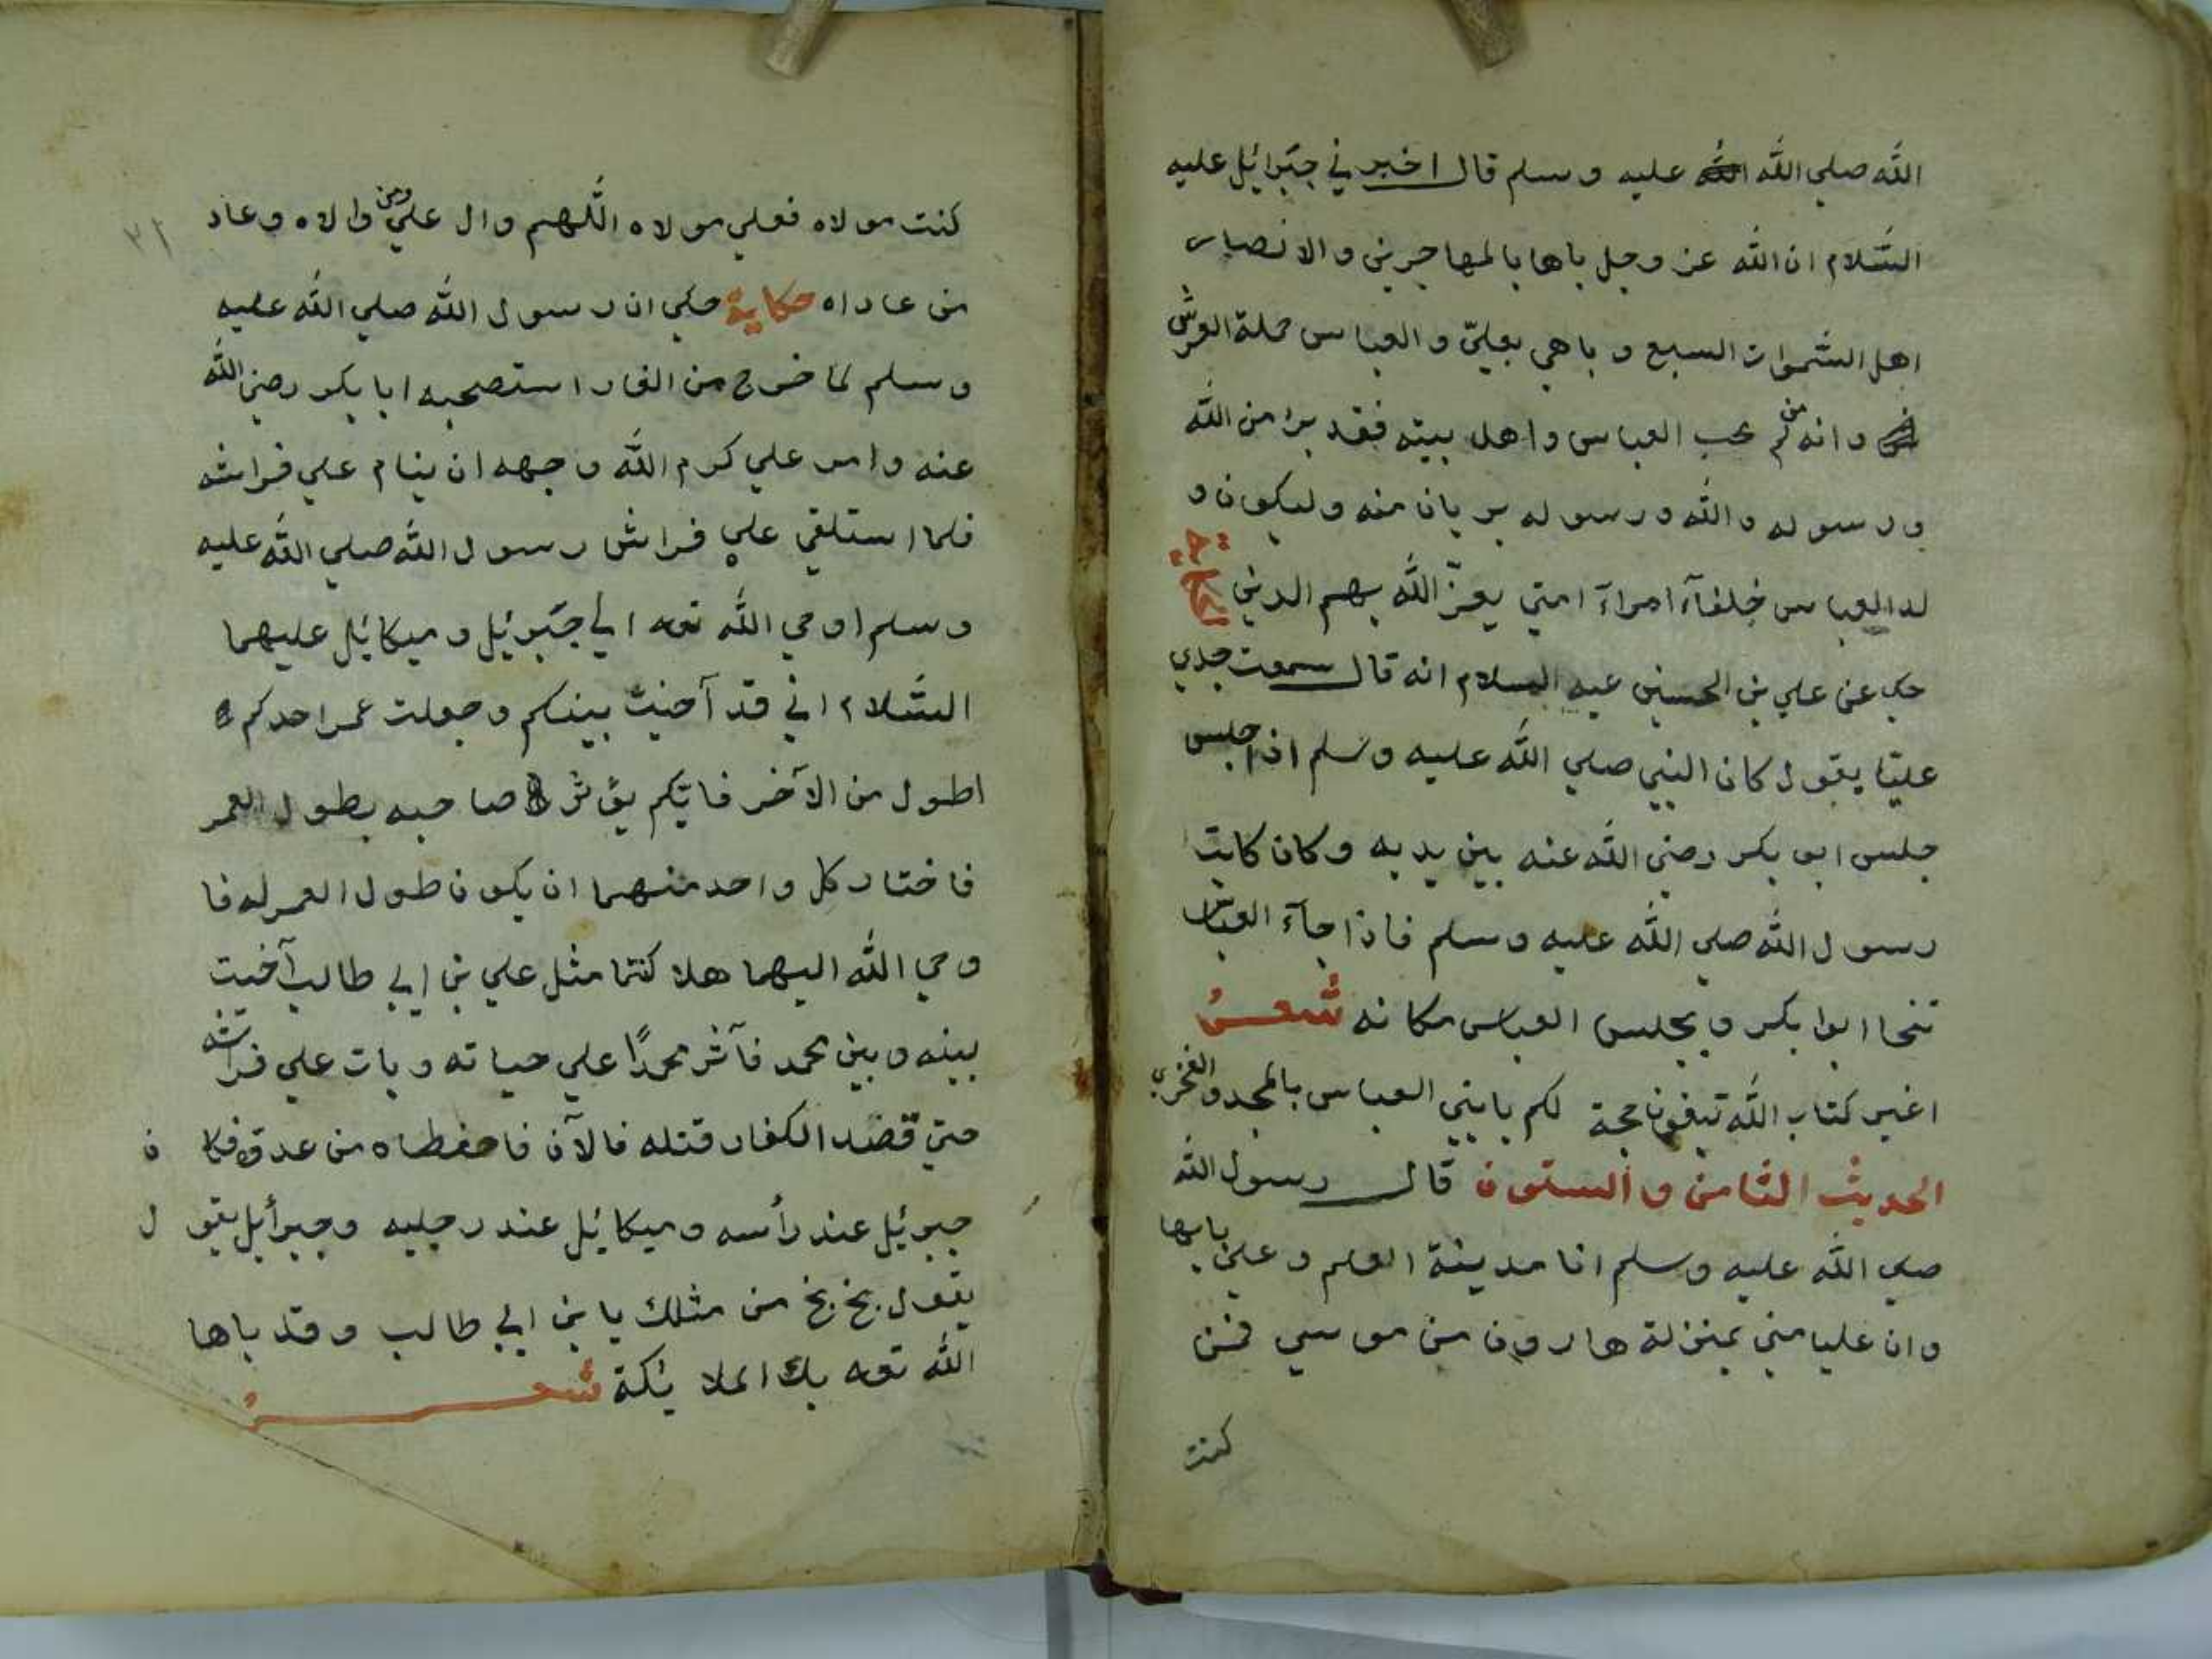 الله صلي الله عليه وسلم قال اخبرني جبرائيل عليه
السلام ان الله عز وجل باها بالمهاجرين والانصار
اهل السموات السبع و باهي بعليّ و العباس حملة العرش
وانه من لم يحب العباس واهل بيته فقد برئ من الله
ورسوله والله ورسوله بريان منه وليكون و
لد العباس خلفآء امرآء امتي يعزّ الله بهم الدين الحكاية
حكي عن علي بن الحسين عليه السلام انه قال سمعت جدي
عليّا يقول كان النبي صلي الله عليه وسلم اذا جلس
جلس ابو بكر رضي الله عنه بين يديه وكان كاتب
رسول الله صلي الله عليه وسلم فاذا جآء العباس
تنحا ابوا بكر ويجلس العباس مكانه شعر
اغير كتاب الله تبغون حجة لكم يا بني العباس بالمجد والفخر
الحديث الثامن والستون قال رسول الله
صلي الله عليه وسلم انا مدينة العلم وعلي بابها
وان عليا مني بمنزلة هارون من موسي فمن
كنت
٢١
كنت مولاه فعلي مولاه اللهم وال علي من والاه وعاد
من عاداه حكاية حكي ان رسول الله صلي الله عليه
وسلم لما خرج من الغار استصحبه ابا بكر رضي الله
عنه وامر علي كرم الله وجهه ان ينام علي فراشه
فلما استلقي علي فراش رسول الله صلي الله عليه
وسلم اوحي الله تعه الي جبرئيل و ميكائيل عليهما
السّلام اني قد آخيت بينكم وجعلت عمر احدكم
اطول من الآخر فايّكم يؤثر صاحبه بطول العمر
فاختار كل واحد منهما ان يكون طول العمر له فا
وحي الله اليهما هلا كنتما مثل علي بن ابي طالب آخيت
بينه وبين محمد فآثر محمدًا علي حياته وبات علي فراشه
حتي قصد الكفار قتله فالآن فاحفظاه من عدوه فكا ن
جبرئيل عند رأسه وميكائيل عند رجليه وجبرأيل يقو ل
يقول بخ بخ من مثلك يا بن ابي طالب وقد باها
الله تعه بك الملا يكة شعر